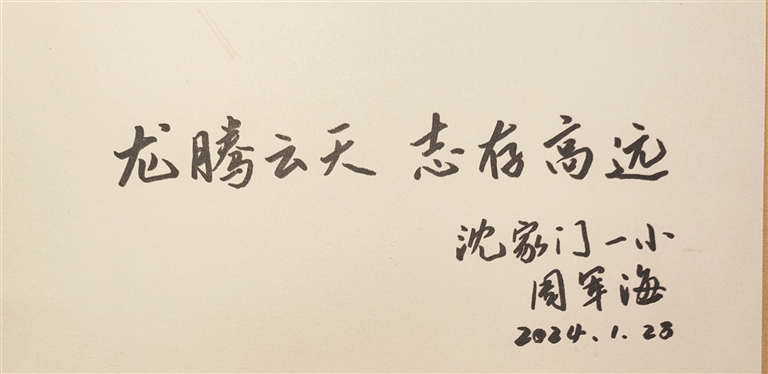 龙腾云天 志存高远
沈家门一小
周军海
2024.1.28